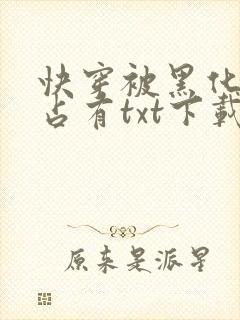 快穿被黑化
占有txt下载
原来是派星